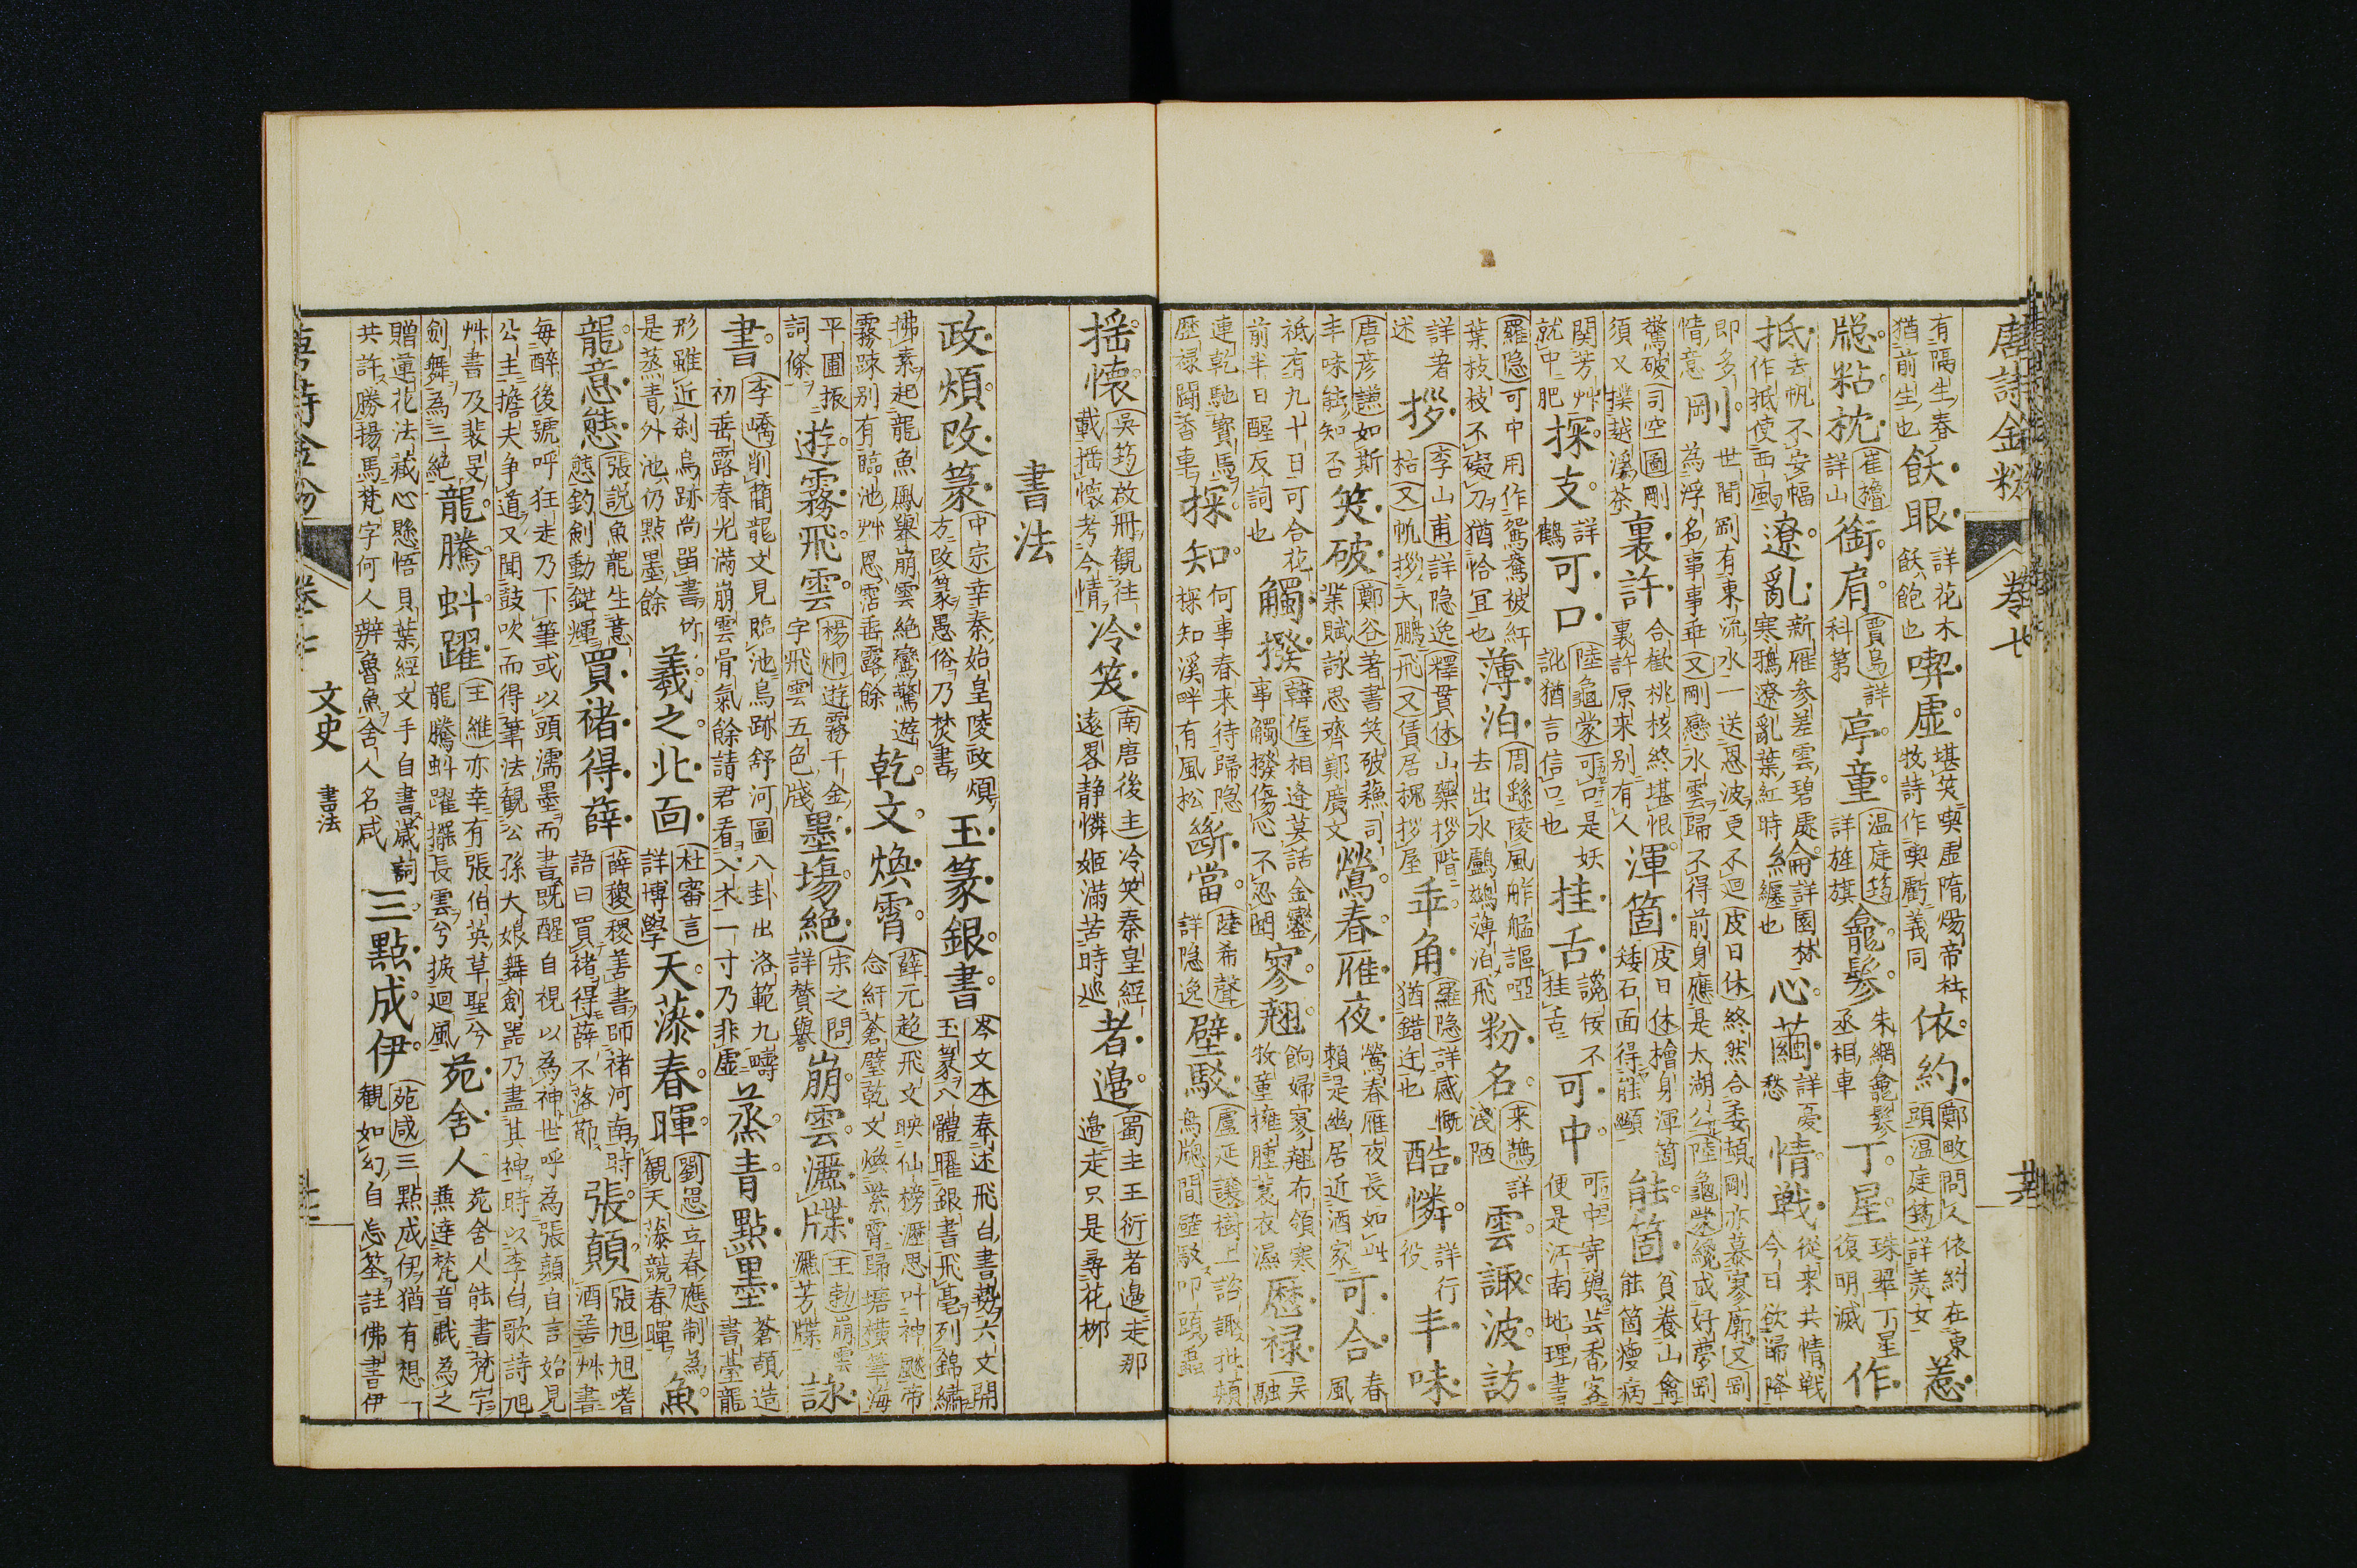 唐詩金粉 卷七
有隔生春猶前生也 飫眼 詳花木飫飽也 喫虛 堪笑喫虛隋煬帝杜牧詩作喫虧義同 依約 鄭畋問人依約在東頭温庭筠詳美女 惹
牕粘枕 崔櫓詳山 銜肩 賈島詳科第 亭童 温庭筠詳旌旗 龕髟 朱網龕髟丞相車 丁星 珠翠丁星復明滅 作
抵 去帆不安幅作抵使西風 遼亂 新雁参差雲碧處寒鴉遼亂葉紅時 詳園林糾纏也 心繭 詳憂愁 情戦 從来共情戦今日欲歸降
即多情意 剛 世間剛有東流水一送恩波更不迴皮日休終然合委頓剛亦慕寥廓又剛為浮名事事垂又剛戀水雲歸不得前身應是太湖公陸龜蒙纔成好夢剛
驚破司空圖剛須又撲越溪茶 裏許 合歓桃核終堪恨裏許原来別有人 渾箇 皮日休檜身渾箇矮石面得能頭 能箇 貧養山禽能箇瘦病
関芳艸就中肥 探支 詳鶴 可口 陸龜蒙可口是妖訛猶言信口也 挂舌 讒佞不挂舌 可中 可中寄與芸香客便是江南地理書
羅隠可中用作鴛鴦被紅葉枝枝不礙刀猶恰冝也 薄泊 周繇陵風舴艋謳啞去出水鸕鷀薄泊飛 粉名 来鵠詳淺陋 雲諏波訪
詳著述 拶 李山甫詳隠逸釋貫休山藥拶階枯又帆拶大鵬飛又賃居槐拶屋 乖角 羅隠詳感慨猶錯迕也 酷憐 詳行役 丰味
唐彦謙如斯丰味能知否 笑破 鄭谷著書笑破蘓司業賦詠思齊鄭廣文 鶯春雁夜 鶯春雁夜長如此頼是幽居近酒家 可合 春風
祗有九十日可合花前半日醒反詞也 觸撥 韓偓相逢莫話金鑾事觸撥傷心不忍聞 寥翹 餉婦寥翹布領寒牧童擁腫蓑衣濕 歴禄 吴融
連乾馳寶馬歴禄闘香車 探知 何事春来待歸隠探知溪畔有風松 断當 陸希聲詳隠逸 壁駁 盧延讓樹上諮諏批頰鳥牕間壁駁叩頭蟲
揺懐 吳筠啟冊観往載揺懐考今情 冷笑 南唐後主冷笑秦皇經遠畧静憐姬滿苦時巡 者邉 蜀主王衍者邉走那邉走只是尋花柳
書法
政煩改篆 中宗幸秦始皇陵政煩方改篆愚俗乃焚書 玉篆銀書 岑文本奉述飛白書勢六文開玉篆八體曜銀書飛毫列錦繡
拂素起龍魚鳳舉崩雲絶鸞驚遊霧踈別有臨池艸恩霑垂露餘 乾文煥霄 薛元超飛文映仙榜瀝思叶神飇帝念紆蒼璧乾文煥紫霄歸塘横筆海
平圃振詞條 遊霧飛雲 楊炯遊霧千金字飛雲五色牋 墨塲絶 宋之問詳賛譽 崩雲灑牒 王勃崩雲灑芳牒 詠
書 李嶠削簡龍文見臨池鳥跡舒河圖八卦出洛範九疇初垂露春光滿崩雲骨氣餘請君看入木一寸乃非虚 蒸青點墨 蒼頡造書臺龍
形雖近刹鳥跡尚留書竹是蒸青外池仍點墨餘 羲之北面 杜審言詳博學 天藻春暉 劉憲立春應制為観天藻競春暉 魚
龍意態 張説魚龍生意態鈎劍動鋩輝 買褚得薛 薛稷稷善書師褚河南時語曰買褚得薛不落節 張顛 張旭旭嗜酒善艸書
每醉後號呼狂走乃下筆或以頭濡墨而書既醒自視以為神世呼為張顛自言始見公主擔夫争道又聞鼓吹而得筆法観公孫大娘舞劍噐乃盡其神時以李白歌詩旭
艸書及裴旻劍舞為三絶 龍騰蚪躍 王維亦幸有張伯英草聖兮龍騰蚪躍擺長雲兮捩迴風 苑舎人 苑舎人能書梵字兼達梵音戲為之
贈蓮花法藏心懸悟貝葉經文手自書箴詞共許勝揚馬梵字何人辨魯魚舎人名咸 三點成伊 苑咸三點成伊猶有想一観如幻自忘筌註佛書伊
唐詩金粉 卷七 文史 書法